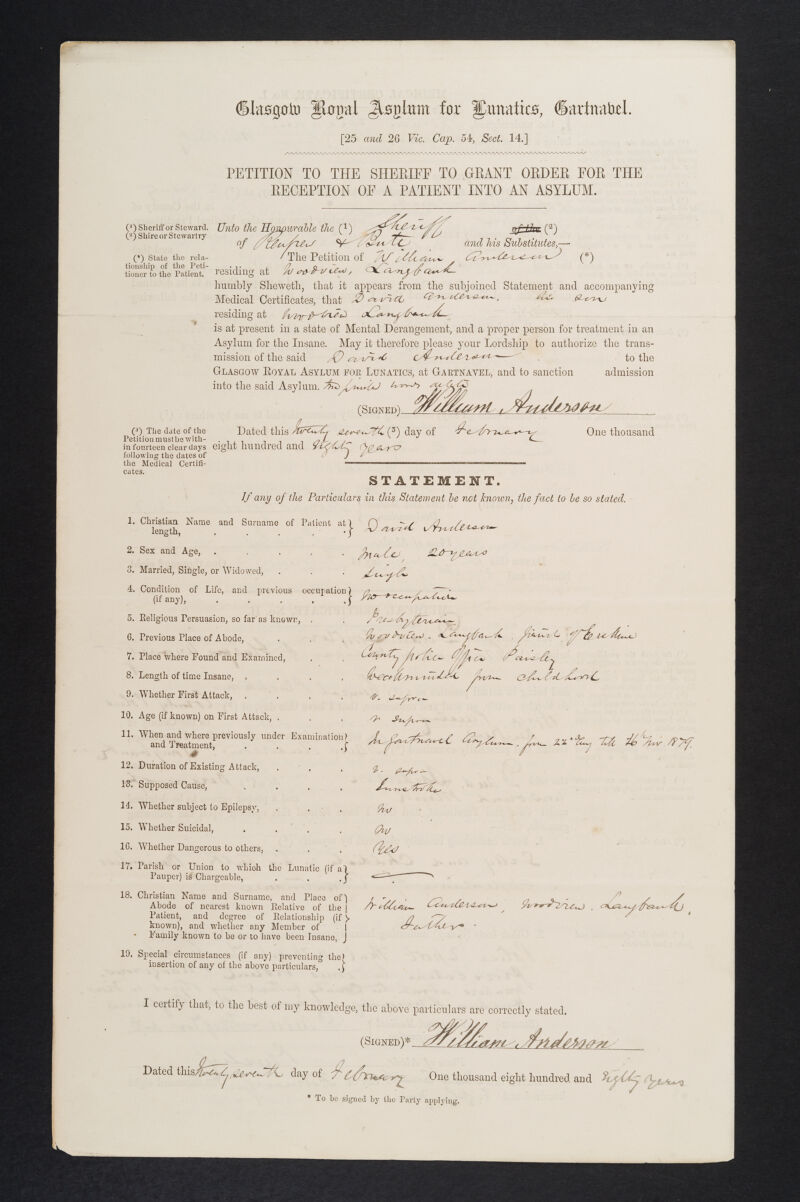 Glasgow Royal Asylum for Lunatics, Gartnabel.
[25 and 26 Vic. Cap. 54, Sect. 14.]
PETITION TO THE SHERIFF TO GRANT ORDER FOR THE
RECEPTION OF A PATIENT INTO AN ASYLUM.
(¹) Sheriff or Steward.
(²) Shire or Stewartry
Unto the Honourable the (¹) Sheriff of the (²)
of Renfrew & Bute and his Substitutes,—
(*) State the rela-
tionship of the Peti-
tioner to the Patient.
The Petition of William Anderson (*)
residing at Woodview, Langbank
humbly Sheweth, that it appears from the subjoined Statement and accompanying
Medical Certificates, that David Anderson, his son
residing at Woodview Langbank
is at present in a state of Mental Derangement, and a proper person for treatment in an
Asylum for the Insane. May it therefore please your Lordship to authorize the trans-
mission of the said David Anderson to the
GLASGOW ROYAL ASYLUM FOR LUNATICS, at GARTNAVEL, and to sanction admission
into the said Asylum. two printed words delete
(SIGNED) William Anderson
(³) The date of the
Petition must be with-
in fourteen clear days
following the dates of
the Medical Certifi-
cates.
Dated this twenty seventh (³) day of February One thousand
eight hundred and Eighty years
STATEMENT.
If any of the Particulars in this Statement be not known, the fact to be so stated.
1. Christian Name and Surname of Patient at
length, David Anderson
2. Sex and Age, Male, 20 years
3. Married, Single, or Widowed, Single
4. Condition of Life, and previous occupation
(if any), No occupation
5. Religious Persuasion, so far as known, Presbyterian
6. Previous Place of Abode, Woodview. Langbank. parish of Erskine
7. Place where Found and Examined, County police Office Paisley
8. Length of time Insane, weakminded from childhood
9. Whether First Attack, v. supra
10. Age (if known) on First Attack, v. supra
11. When and where previously under Examination
and Treatment, In Gartnavel Asylum. from 22d Aug till 26 Nov 1879.
12. Duration of Existing Attack, v. supra
13. Supposed Cause, Sunstroke
14. Whether subject to Epilepsy, No
15. Whether Suicidal, No
16. Whether Dangerous to others, Yes
17. Parish or Union to which the Lunatic (if a
Pauper) is Chargeable,
18. Christian Name and Surname, and Place of
Abode of nearest known Relative of the
Patient, and degree of Relationship (if
known), and whether any Member of
Family known to be or to have been Insane,
William Anderson, Woodview. Langbank,
Father.
19. Special circumstances (if any) preventing the
insertion of any of the above particulars,
I certify that, to the best of my knowledge, the above particulars are correctly stated.
(SIGNED)* William Anderson
Dated this twenty seventh day of February One thousand eight hundred and Eighty years
* To be signed by the Party applying.